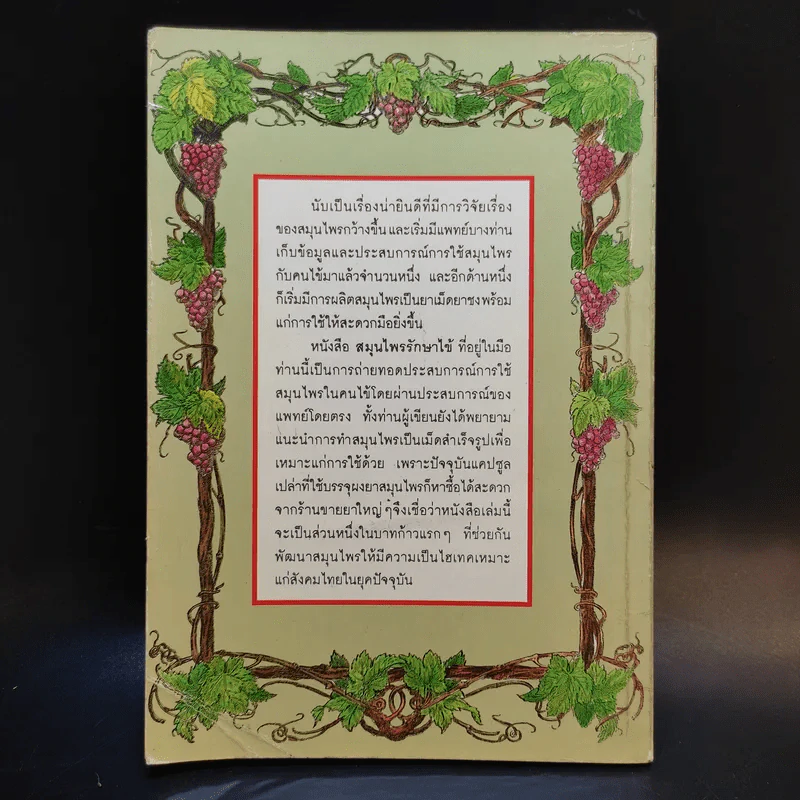 นับเป็นเรื่องน่ายินดีที่มีการวิจัยเรื่อง
ของสมุนไพรกว้างขึ้น และเริ่มมีแพทย์บางท่าน
เก็บข้อมูลและประสบการณ์การใช้สมุนไพร
กับคนไข้มาแล้วจำนวนหนึ่ง และอีกด้านหนึ่ง
ก็เริ่มมีการผลิตสมุนไพรเป็นยาเม็ดยาชงพร้อม
แก่การใช้ให้สะดวกมือยิ่งขึ้น
หนังสือ สมุนไพรรักษาไข้ ที่อยู่ในมือ
ท่านนี้เป็นการถ่ายทอดประสบการณ์การใช้
สมุนไพรในคนไข้โดยผ่านประสบการณ์ของ
แพทย์โดยตรง ทั้งท่านผู้เขียนยังได้พยายาม
แนะนำการทำสมุนไพรเป็นเม็ดสำเร็จรูปเพื่อ
เหมาะแก่การใช้ด้วย เพราะปัจจุบันแคปซูล
เปล่าที่ใช้บรรจุผงยาสมุนไพรก็หาซื้อได้สะดวก
จากร้านขายยาใหญ่ ๆ จึงเชื่อว่าหนังสือเล่มนี้
จะเป็นส่วนหนึ่งในบาทก้าวแรก ๆ ที่ช่วยกัน
พัฒนาสมุนไพรให้มีความเป็นไฮเทคเหมาะ
แก่สังคมไทยในยุคปัจจุบัน